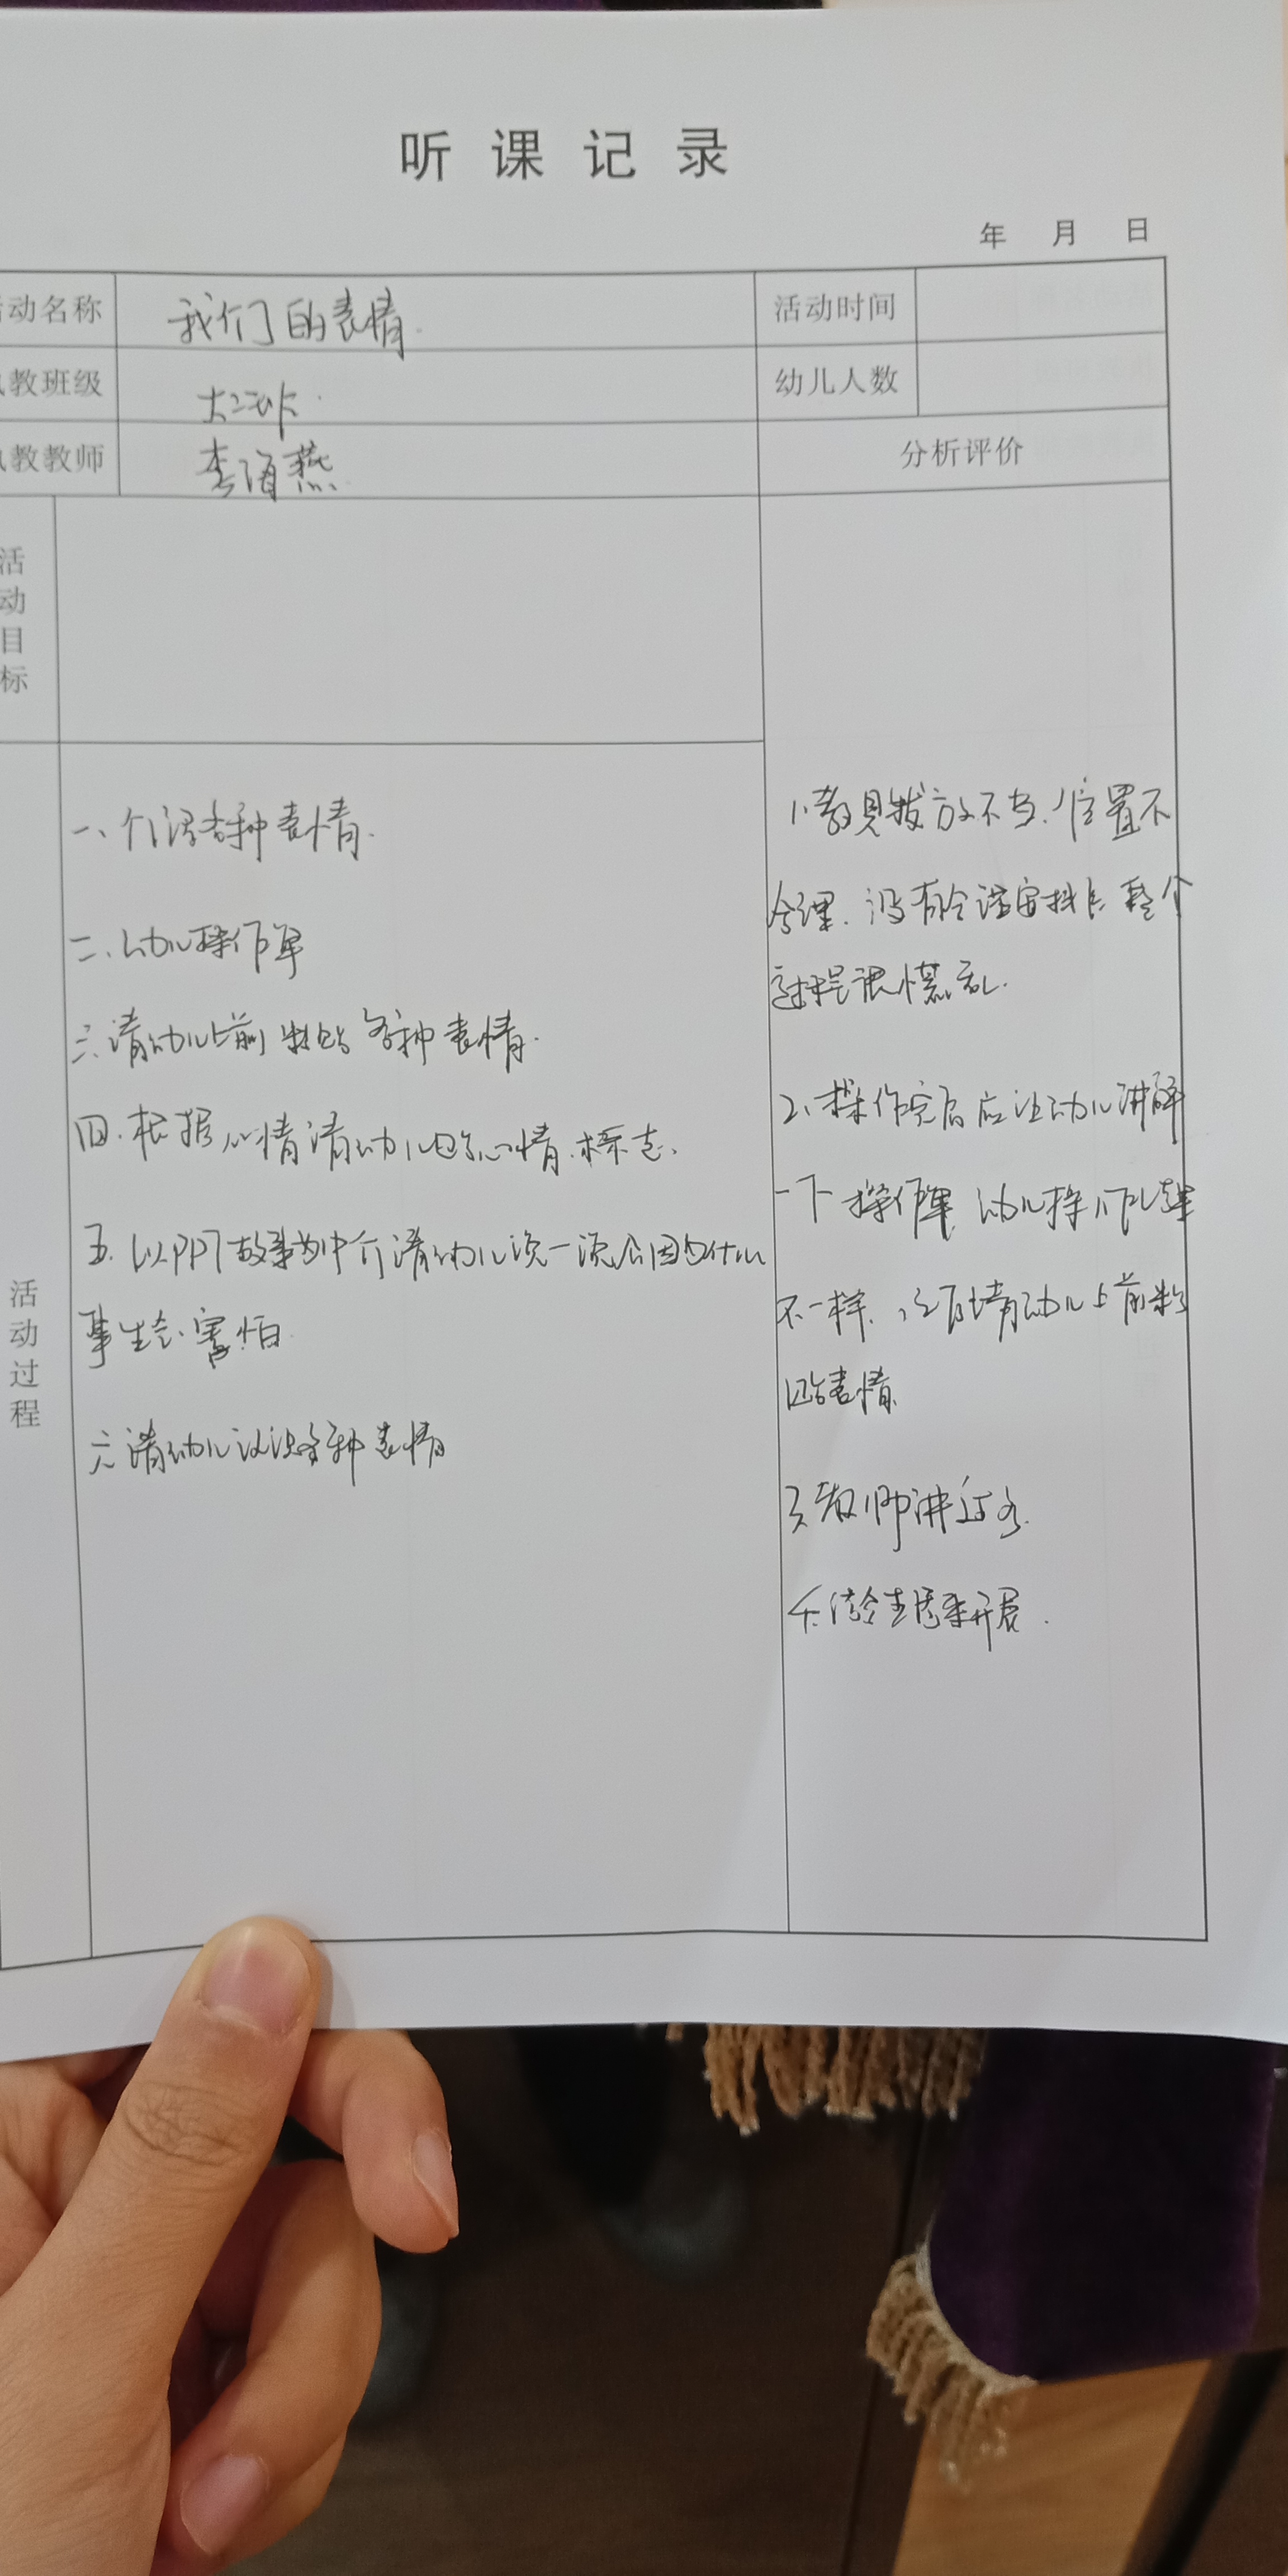 听课记录
年 月 日
动名称 我们的表情. 活动时间
教班级 大二班. 幼儿人数
教教师 李海燕. 分析评价
活动目标
活动过程
一、介绍各种表情.
二、幼儿操作单
三、请幼儿上前粘贴各种表情.
四.根据心情请幼儿 心情.标志.
五.以PPT故事为中介请幼儿说一说会因为什么
事生气.害怕.
六请幼儿认识各种表情
1、教具摆放不当.位置不
合理.没有合适安排后整个
过程很慌乱.
2、操作完后应让幼儿讲解
一下操作单,幼儿操作
不一样.之后请幼儿上前粘
贴表情.
3教师讲过多.
结合生活来开展.